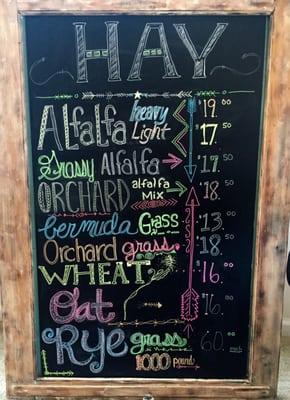 HAY
Alfalfa heavy $19.00
Light $17.50
Grassy Alfalfa $17.50
ORCHARD alfalfa Mix $18.50
bermuda Grass $13.00
Orchard grass $18.50
WHEAT $16.00
Oat $16.00
Rye grass 60.00
1000 pound